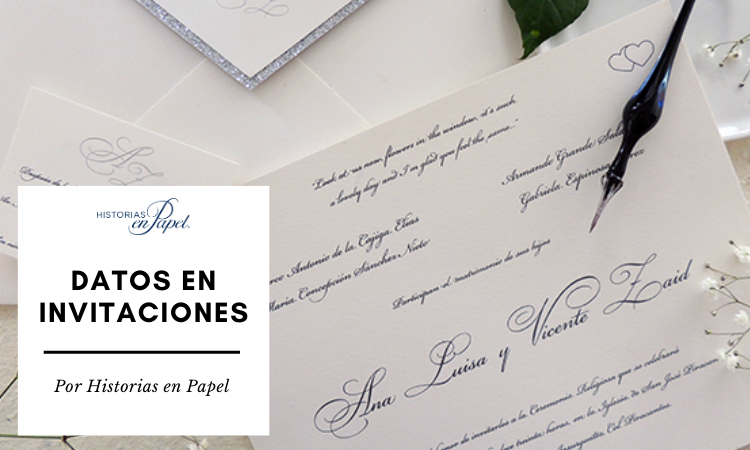 "Look at us now, flowers in the window, it's such
a lovely day and I'm glad you feel the same..."
Armando Grande
Gabriela Espinosa
Antonio de la Cajiga Elías
María Concepción Sánchez Nieto
Participan el matrimonio de sus hijos
Ana Luisa y Vicente Zaid
de invitarlos a la Ceremonia Religiosa que se celebrará
treinta horas, en la Iglesia de San José
Insurgentes, Col.
AZ
HISTORIAS
en Papel
DATOS EN
INVITACIONES
Por Historias en Papel